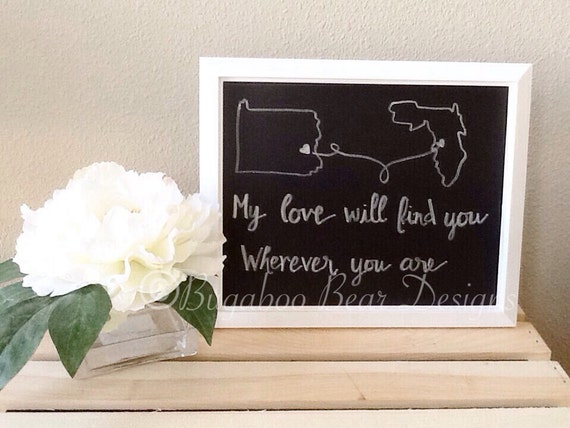 My love will find you
Wherever you are
©Bugaboo Bear Designs